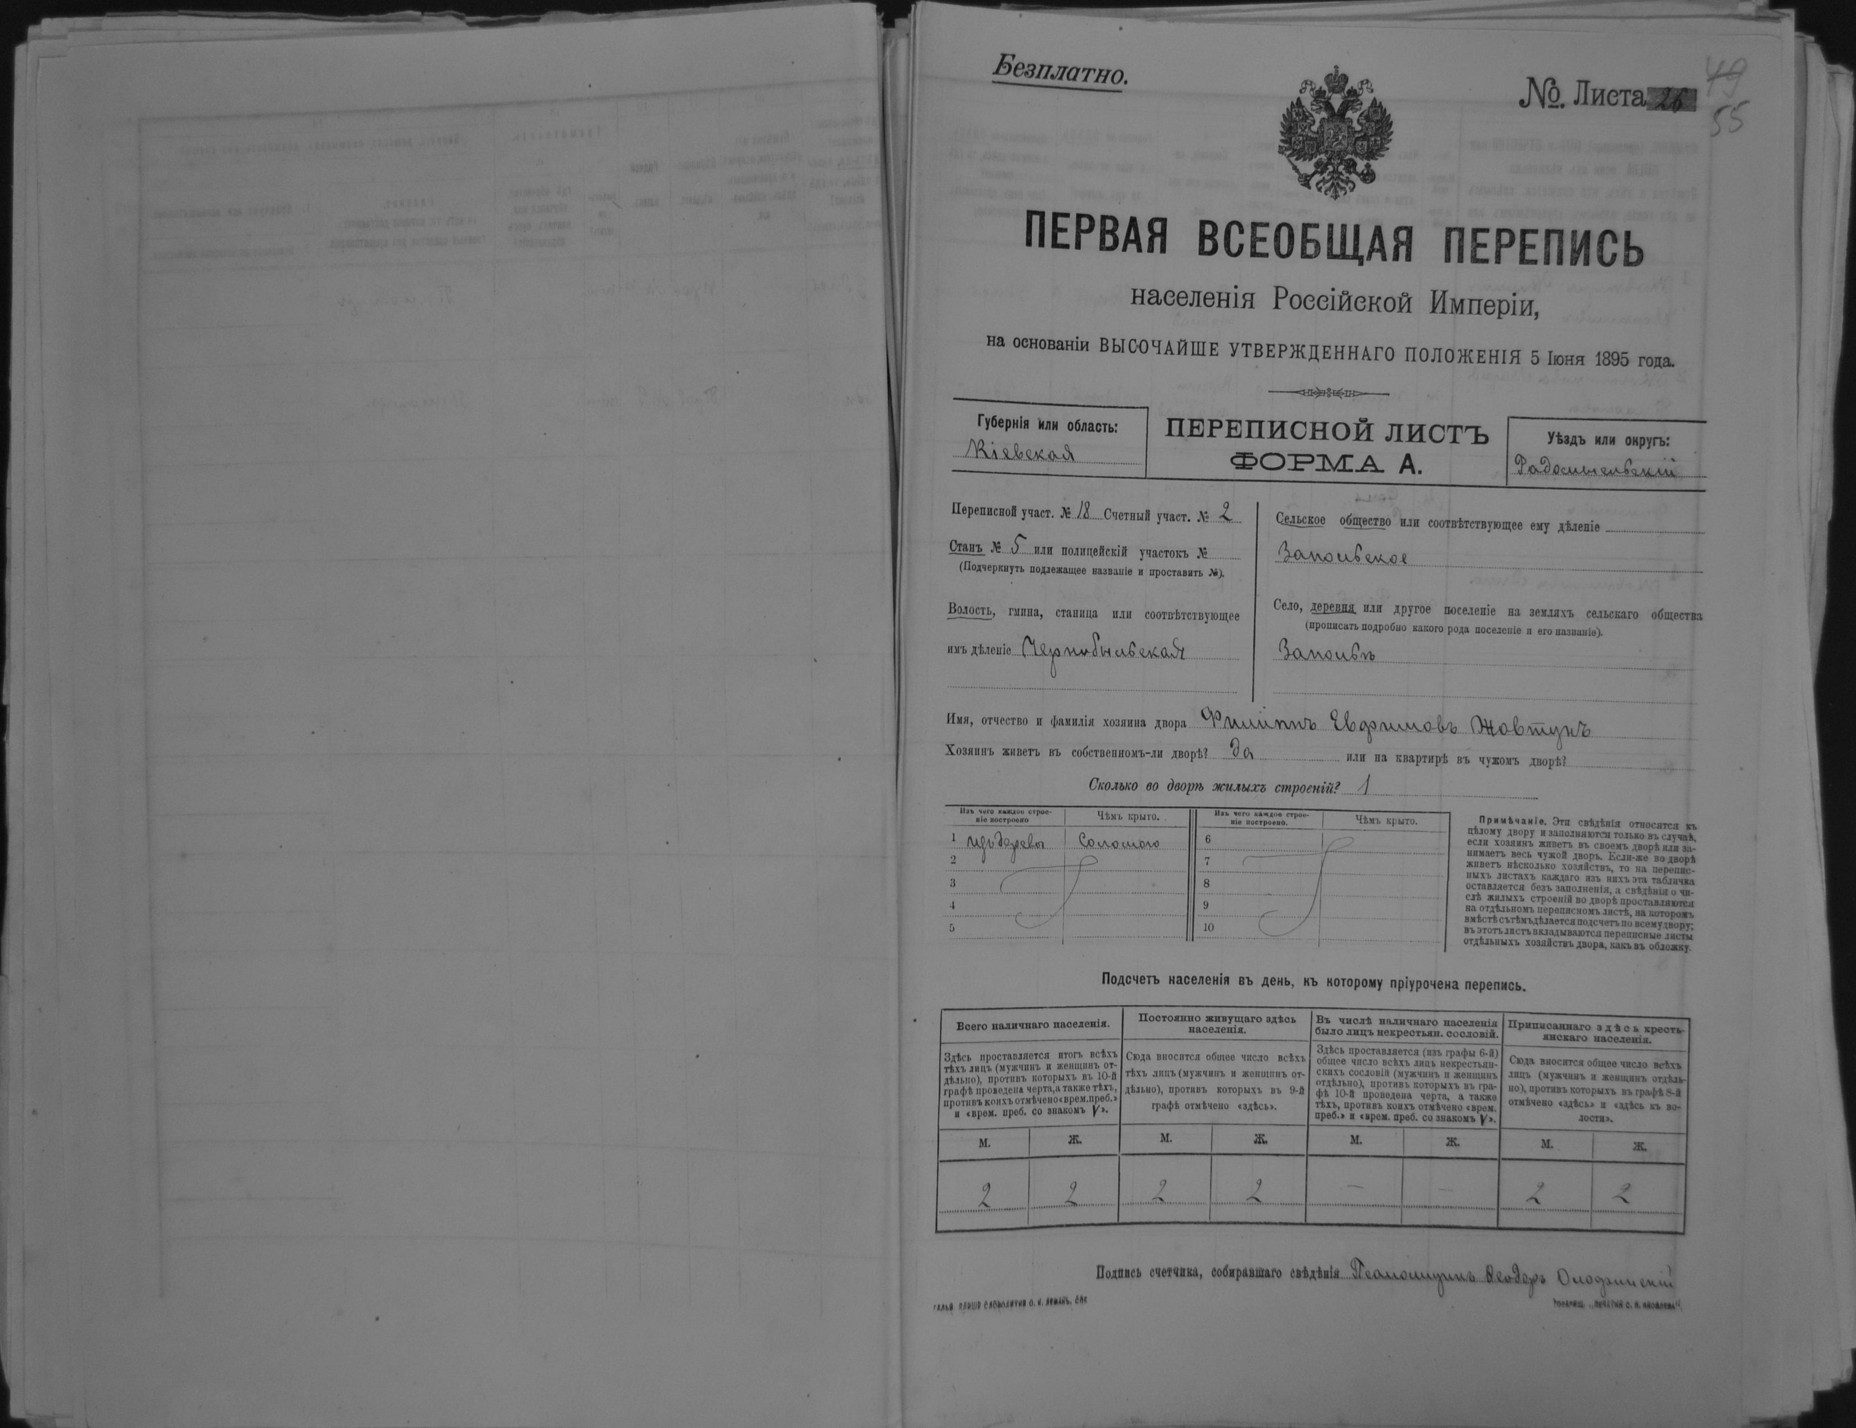 Безплатно.
№. Листа 26
49
55
ПЕРВАЯ ВСЕОБЩАЯ ПЕРЕПИСЬ
населенія Россійской Имперіи,
на основаніи ВЫСОЧАЙШЕ УТВЕРЖДЕННАГО ПОЛОЖЕНІЯ 5 Іюня 1895 года.
Губернія или область:
Кіевская
ПЕРЕПИСНОЙ ЛИСТЪ
ФОРМА А.
Уѣздъ или округъ:
Радомысльскій
Переписной участ. № 18 Счетный участ. № 2
Станъ № 5 или полицейскій участокъ №
(Подчеркнуть подлежащее названіе и проставить №).
Волость, гмина, станица или соотвѣтствующее
имъ дѣленіе Чернобыльская
Сельское общество или соотвѣтствующее ему дѣленіе
Запольское
Село, деревня или другое поселеніе на земляхъ сельскаго общества
(прописать подробно какого рода поселеніе и его названіе).
Имя, отчество и фамилія хозяина двора Филиппъ Евфимовъ Жовтунъ
Хозяинъ живетъ въ собственномъ-ли дворѣ? да или на квартирѣ въ чужомъ дворѣ?
Сколько во дворѣ жилыхъ строеній? 1
Изъ чего каждое строе-
ніе построено
Чѣмъ крыто.
Изъ чего каждое строе-
ніе построено.
Чѣмъ крыто.
1 изъ дерева Соломою
2
3
4
5
6
7
8
9
10
Примѣчаніе. Эти свѣдѣнія относятся къ
цѣлому двору и заполняются только въ случаѣ,
если хозяинъ живетъ въ своемъ дворѣ или за-
нимаетъ весь чужой дворъ. Если-же во дворѣ
живетъ нѣсколько хозяйствъ, то на перепис-
ныхъ листахъ каждаго изъ нихъ эта табличка
оставляется безъ заполненія, а свѣдѣнія о чи-
слѣ жилыхъ строеній во дворѣ проставляются
на отдѣльномъ переписномъ листѣ, на которомъ
вмѣстѣ съ тѣмъ дѣлается подсчетъ по всему двору;
въ этотъ листъ вкладываются переписные листы
отдѣльныхъ хозяйствъ двора, какъ въ обложку.
Подсчетъ населенія въ день, къ которому пріурочена перепись.
Всего наличнаго населенія.
Здѣсь проставляется итогъ всѣхъ
тѣхъ лицъ (мужчинъ и женщинъ от-
дѣльно), противъ которыхъ въ 10-й
графѣ проведена черта, а также тѣхъ,
противъ коихъ отмѣчено «врем. преб.»
и «врем. преб. со знакомъ V».
Постоянно живущаго здѣсь
населенія.
Сюда вносится общее число всѣхъ
тѣхъ лицъ (мужчинъ и женщинъ от-
дѣльно), противъ которыхъ въ 9-й
графѣ отмѣчено «здѣсь».
Въ числѣ наличнаго населенія
было лицъ некрестьян. сословій.
Здѣсь проставляется (изъ графы 6-й)
общее число всѣхъ лицъ некрестьян-
скихъ сословій (мужчинъ и женщинъ
отдѣльно), противъ которыхъ въ гра-
фѣ 10-й проведена черта, а также
тѣхъ, противъ коихъ отмѣчено «врем.
преб.» и «врем. преб. со знакомъ V».
Приписаннаго здѣсь кресть-
янскаго населенія.
Сюда вносится общее число всѣхъ
лицъ (мужчинъ и женщинъ отдѣль-
но), противъ которыхъ въ графѣ 8-й
отмѣчено «здѣсь» и «здѣсь къ во-
лости».
М. Ж. М. Ж. М. Ж. М. Ж.
2 2 2 2 — — 2 2
Подпись счетчика, собиравшаго свѣдѣнія Псаломщикъ Ѳеодоръ